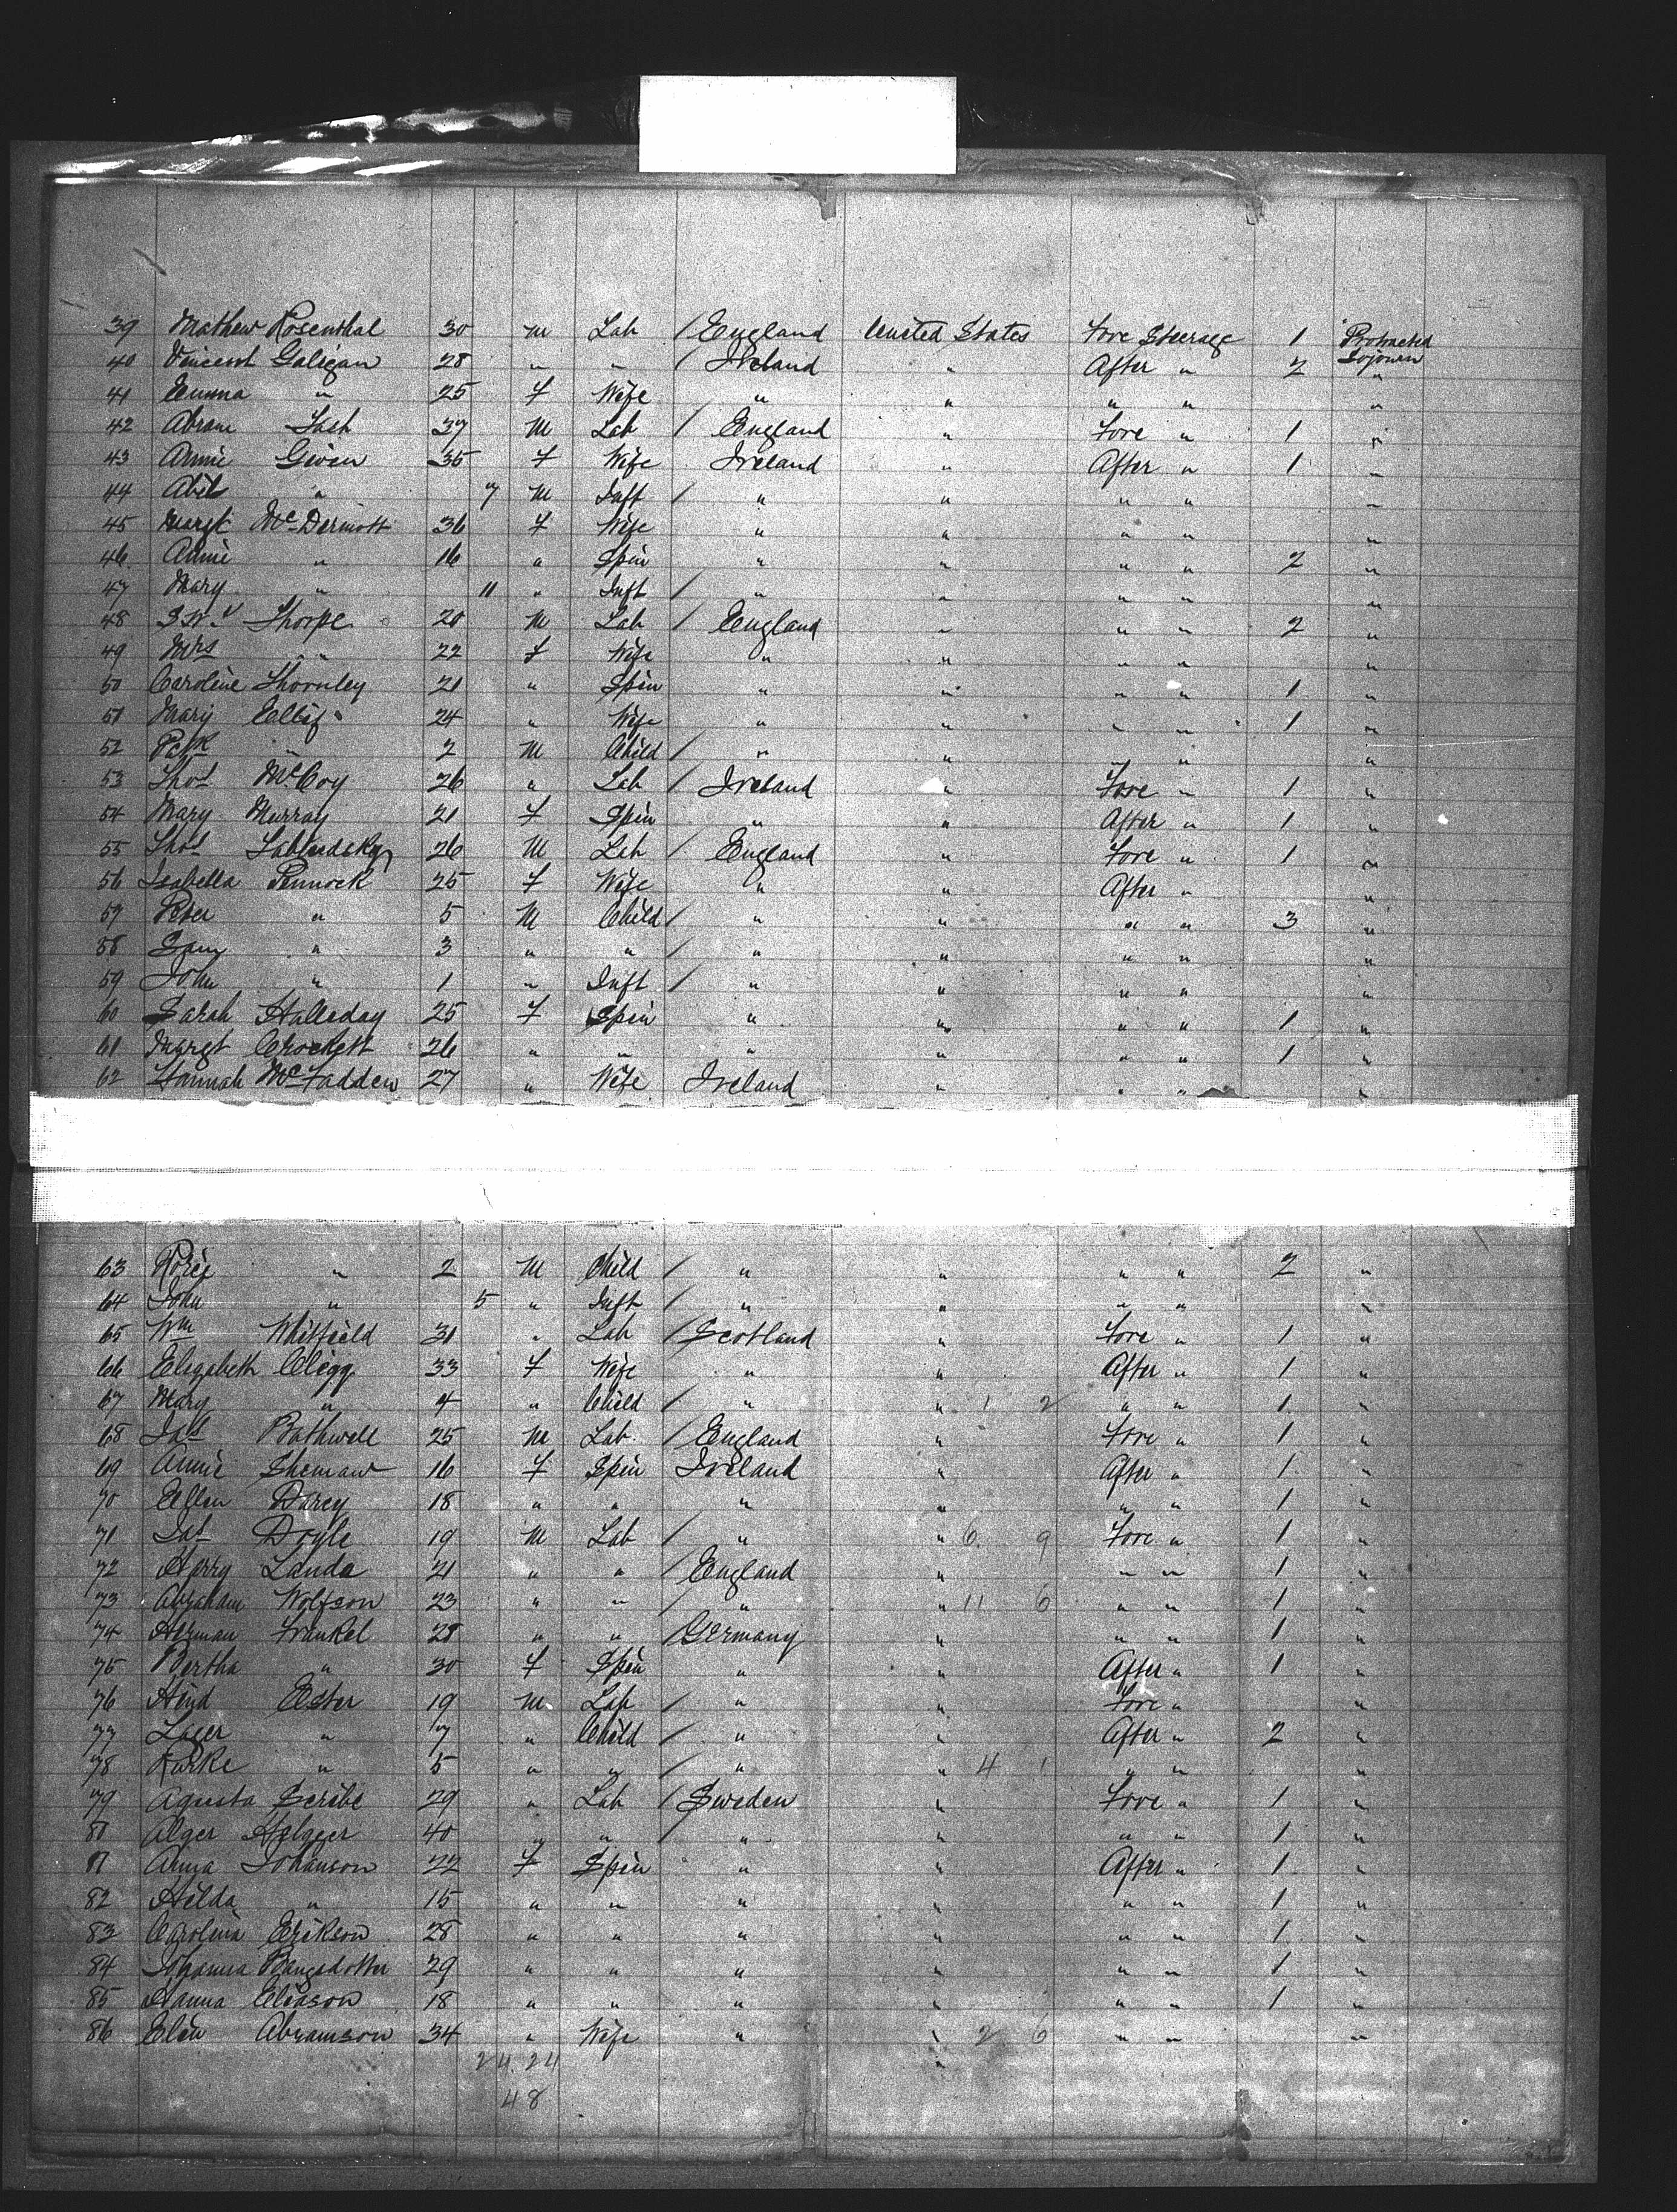 39 Mathew Rosenthal 30 M Lab / England United States Fore Steerage 1 Protracted Sojourn
40 Vincent Galigan 28 " " / Ireland " After " 2 "
41 Emma " 25 F Wife " " " " "
42 Abram Lash 37 M Lab / England " Fore " 1 "
43 Annie Given 35 F Wife Ireland " After " 1 "
44 Abel " 7 M Inft / " " " " "
45 Margt McDermott 36 F Wife " " " " "
46 Annie " 16 " Spin " " " " 2 "
47 Mary " 11 " Inft / " " " " "
48 Thorpe 20 M Lab / England " " " 2 "
49 Mrs " 22 F Wife " " " " "
50 Caroline Thornley 21 " Spin " " " " 1 "
51 Mary 24 " Wife " " " " 1 "
52 Patk " 2 M Child / " " " " "
53 Thos McCoy 26 " Lab / Ireland " Fore " 1 "
54 Mary Murray 21 F Spin " " After " 1 "
55 Thos 26 M Lab / England " Fore " 1 "
56 Isabella Pennock 25 F Wife " " After " "
57 Peter " 5 M Child / " " " " 3 "
58 Sam " 3 " " / " " " " "
59 John " 1 " Inft / " " " " "
60 Sarah Halleday 25 F Spin " " " " 1 "
61 Margt Crockett 26 " " " " " " 1 "
62 Hannah McFadden 27 " Wife Ireland " " " "
63 " 2 M Child / " " " " 2 "
64 John " 5 " Inft / " " " " "
65 Wm Whitfield 31 " Lab / Scotland " Fore " 1 "
66 Elizabeth Clegg 33 F Wife " " After " 1 "
67 Mary " 4 " Child / " " 1 2 " " 1 "
68 Jas Bathwell 25 M Lab / England " Fore " 1 "
69 Annie Sheman 16 F Spin Ireland " After " 1 "
70 Ellen Darcy 18 " " " " " " 1 "
71 Jas Doyle 19 M Lab / " " 6 9 Fore " 1 "
72 Harry Landa 21 " " / England " " " 1 "
73 Abraham Wolfson 23 " " / " " 11 6 " " 1 "
74 Herman Frankel 28 " " / Germany " " " 1 "
75 Bertha " 30 F Spin " " After " 1 "
76 Ester 19 M Lab / " " Fore " "
77 " 7 " Child / " " After " 2 "
78 " 5 " " / " " 4 1 " " "
79 Agusta Scribe 29 " Lab / Sweden " Fore " 1 "
80 Alger Holgeer 40 " " / " " " " 1 "
81 Anna Johanson 22 F Spin " " After " 1 "
82 Hilda " 15 " " " " " " 1 "
83 Carolina Erikson 28 " " " " " " 1 "
84 Johanna 29 " " " " " " 1 "
85 Hanna Eliason 18 " " " " " " 1 "
86 Elin Abramson 34 " Wife " " 2 6 " " "
24. 24
48